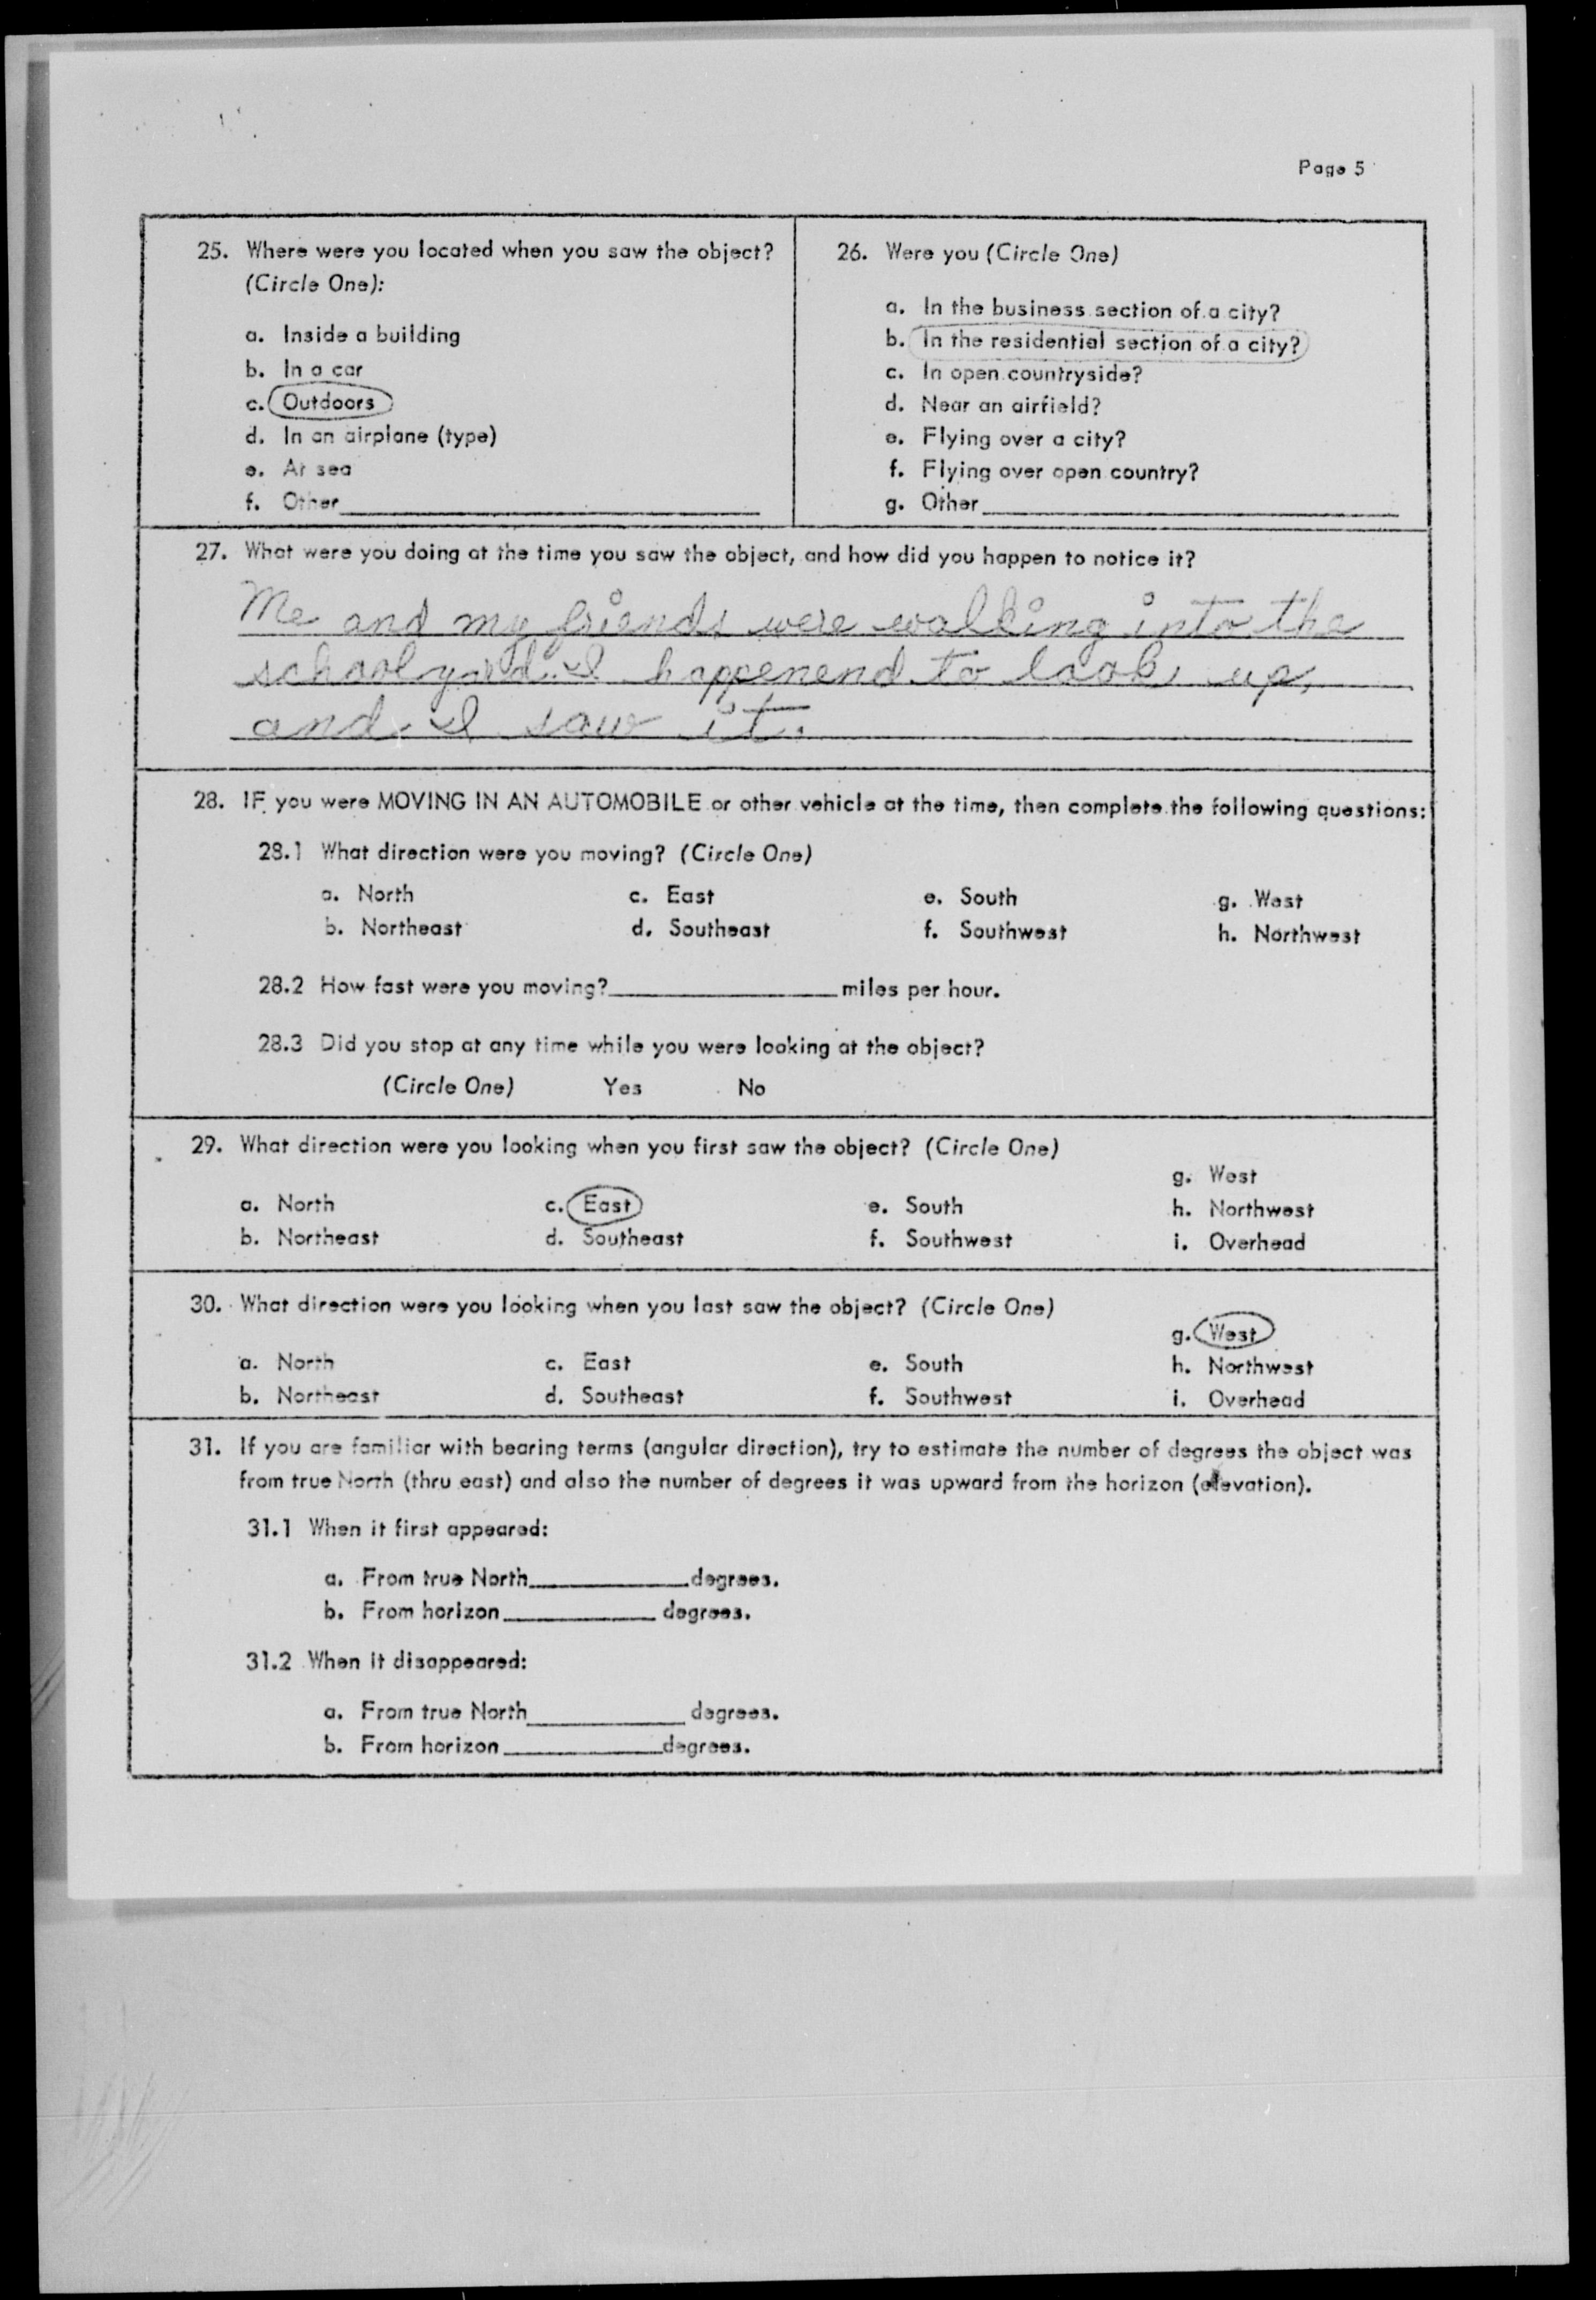 Page 5
25. Where were you located when you saw the object?
(Circle One):
a. Inside a building
b. In a car
c. Outdoors
d. In an airplane (type)
e. At sea
f. Other
26. Were you (Circle One)
a. In the business section of a city?
b. In the residential section of a city?
c. In open countryside?
d. Near an airfield?
e. Flying over a city?
f. Flying over open country?
g. Other
27. What were you doing at the time you saw the object, and how did you happen to notice it?
Me and my friends were walking into the
schoolyard. I happenend to look up,
and I saw it.
28. IF you were MOVING IN AN AUTOMOBILE or other vehicle at the time, then complete the following questions:
28.1 What direction were you moving? (Circle One)
a. North c. East e. South g. West
b. Northeast d. Southeast f. Southwest h. Northwest
28.2 How fast were you moving? miles per hour.
28.3 Did you stop at any time while you were looking at the object?
(Circle One) Yes No
29. What direction were you looking when you first saw the object? (Circle One)
g. West
a. North c. East e. South h. Northwest
b. Northeast d. Southeast f. Southwest i. Overhead
30. What direction were you looking when you last saw the object? (Circle One)
g. West
a. North c. East e. South h. Northwest
b. Northeast d. Southeast f. Southwest i. Overhead
31. If you are familiar with bearing terms (angular direction), try to estimate the number of degrees the object was
from true North (thru east) and also the number of degrees it was upward from the horizon (elevation).
31.1 When it first appeared:
a. From true North degrees.
b. From horizon degrees.
31.2 When it disappeared:
a. From true North degrees.
b. From horizon degrees.